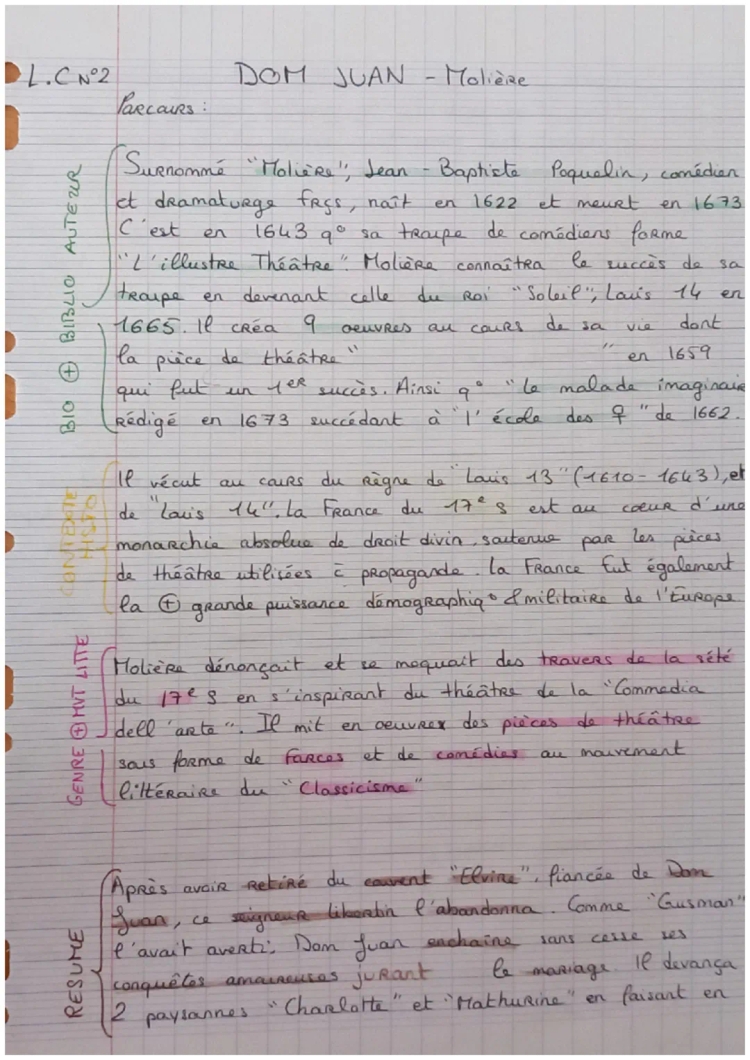 L.C N°2 DOM JUAN - Molière
Parcours :
BIO ⊕ BIBLIO AUTEUR
Surnommé "Molière", Jean - Baptiste Poquelin, comédien
et dramaturge frçs, naît en 1622 et meurt en 1673
C'est en 1643 q° sa troupe de comédiens forme
"L'illustre Théâtre". Molière connaîtra le succès de sa
troupe en devenant celle du Roi "Soleil", Louis 14 en
1665. Il créa 9 oeuvres au cours de sa vie dont
la pièce de théâtre " " en 1659
qui fut un 1er succès. Ainsi q° "Le malade imaginaire
Rédigé en 1673 succédant à "l'école des ♀" de 1662.
CONTEXTE HISTO
Il vécut au cours du Règne de "Louis 13" (1610 - 1643), et
de "Louis 14". La France du 17e s est au coeur d'une
monarchie absolue de droit divin, soutenue par les pièces
de théâtre utilisées c̄ propagande. La France fut également
la ⊕ grande puissance démographiq° & militaire de l'Europe
GENRE ⊕ MVT LITTE
Molière dénonçait et se moquait des travers de la sété
du 17e s en s'inspirant du théâtre de la "Commedia
dell'arte". Il mit en oeuvres des pièces de théâtre
sous forme de farces et de comédies au mouvement
littéraire du "Classicisme"
RESUME
Après avoir retiré du couvent "Elvire", fiancée de Dom
Juan, ce seigneur libertin l'abandonna. Comme "Gusman"
l'avait averti, Dom Juan enchaîne sans cesse ses
conquêtes amoureuses jurant le mariage. Il devança
2 paysannes "Charlotte" et "Mathurine" en faisant en